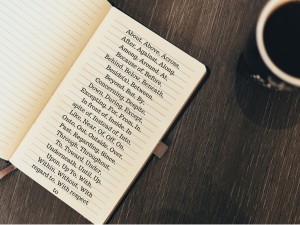 About, Above, Across,
After, Against, Along,
Among, Around, At,
Because of, Before,
Behind, Below, Beneath,
Beside(s), Between,
Beyond, But, By,
Concerning, Despite,
Down, During, Except,
Excepting, For, From, In,
In front of, Inside, In
spite of Instead of, Into,
Like, Near, Of, Off, On,
Onto, Out, Outside, Over,
Past, Regarding, Since,
Through, Throughout,
To, Toward, Under,
Underneath, Until, Up,
Upon, Up To, With,
Within, Without, With
regard to, With respect
to